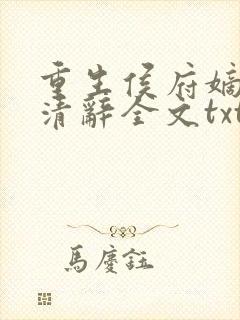 重生侯府嫡
清辭全文txt
馬慶鈺